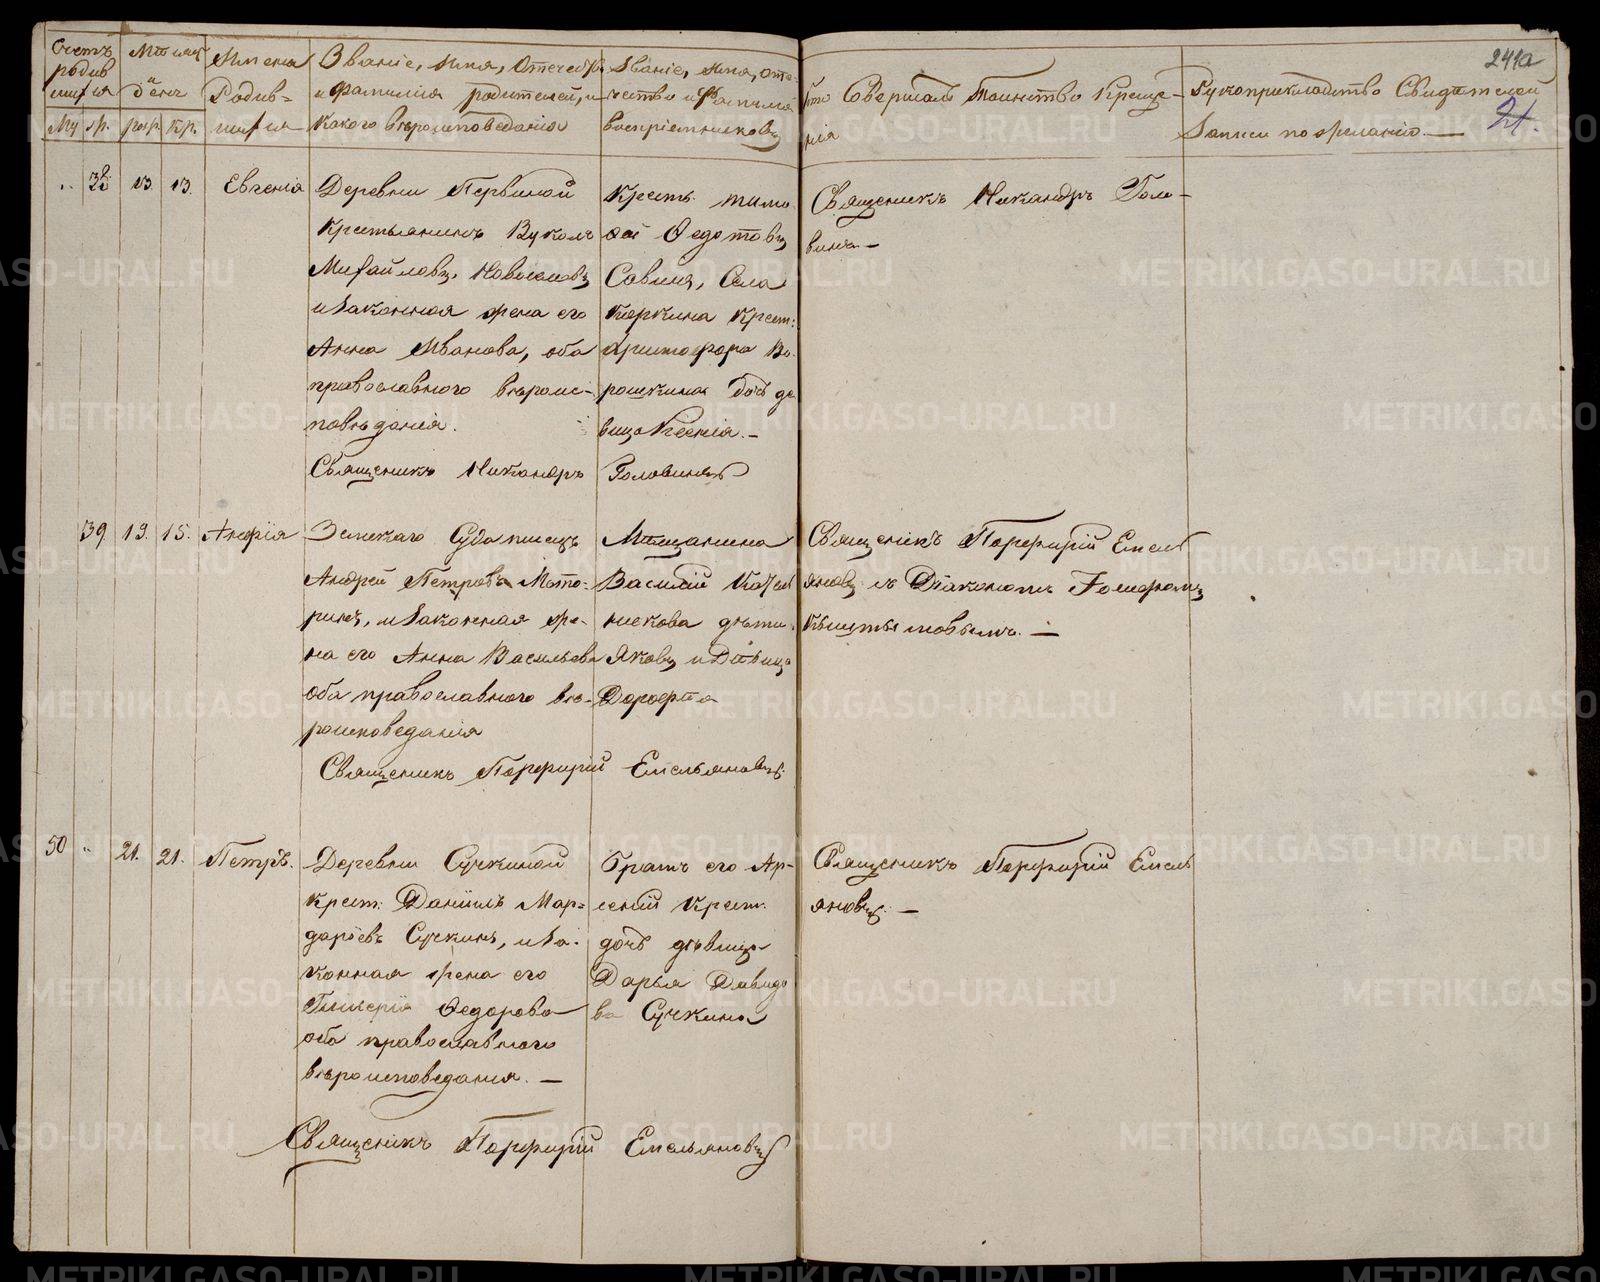 Счетъ родившихся
Мѣсяцъ и день
Имена Родившихся
Званіе, Имя, Отечество и Фамилія родителей, и какого вѣроисповеданія
Званіе, имя, отечество и Фамилія воспріемниковъ
Кто Совершалъ Таинство Крещенія
Рукоприкладство Свидѣтелей Записи по желанію. —
241а
21.
Му. Ж. рож. Кр.
38 13. 13. Евгенія
Деревни Первиной
Крестьянинъ Вуколъ
Михайловъ Новоселовъ
и Законная жена его
Анна Иванова, оба
православнаго вѣроис-
повѣданія.
Священикъ Никандръ Головинъ
Крестъ. тимо-
фей Федотовъ
Савинъ, Села
Коркина Крест:
Христофора Во-
рошкина дочь дѣ-
вица Ксенія. —
Священикъ Никандръ Голо-
винъ —
39 13. 15. Анфія
Земскаго Суда писецъ
Андрей Петровъ Мото-
ринъ, и Законная же-
на его Анна Васильева
оба православнаго вѣ-
роисповедания
Священикъ Порфирій Емельяновъ.
Мѣщанина
Василій
дѣти
Яковъ и Дѣвица
Дорофѣя
Священикъ Порфирій Емель
яновъ съ Діакономъ Іосифомъ
50 " 21. 21. Петръ.
Деревни Сучкиной
крест. Даниилъ Мар-
даріевъ Сучкинъ, и За-
конная жена его
Гликерія Федорова
оба православнаго
вѣроисповедания. —
Священикъ Порфирій Емельяновъ
Братъ его Ар-
сеній Крест.
дочь дѣвица
Дарья Давидо
ва Сучкина
Священикъ Порфирій Емель
яновъ. —
METRIKI.GASO-URAL.RU